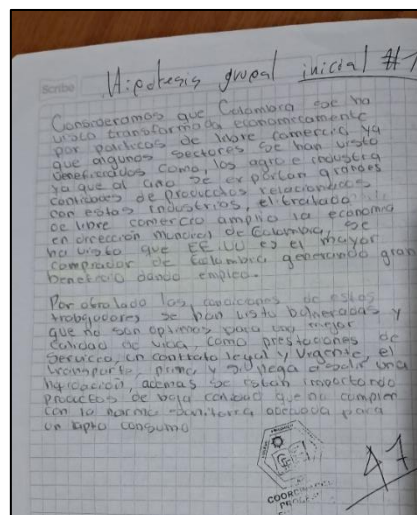 Scribe
Hipotesis grupal inicial #1
Consideramos que Colombia se ha
visto transformada economicamente
por politicas de libre comercio ya
que algunos sectores se han visto
beneficiados como los agro e industria
ya que al año se exportan grandes
cantidades de productos relacionados
con estas industrias, el tratado
de libre comercio amplio la economia
en dirección mundial de Colombia, se
ha visto que EE.UU es el mayor
comprador de Colombia generando gran
beneficio dando empleo.
Por otro lado las condiciones de estos
trabajadores se han visto bulneradas y
que no son optimos para una mejor
calidad de vida, como prestaciones de
Servicio, un contrato legal y vigente, el
transporte, prima y si llega a salir una
liquidación, además se estan importando
productos de baja calidad que no cumplen
con la norma sanitaria adecuada para
un apto consumo
COORDI
47